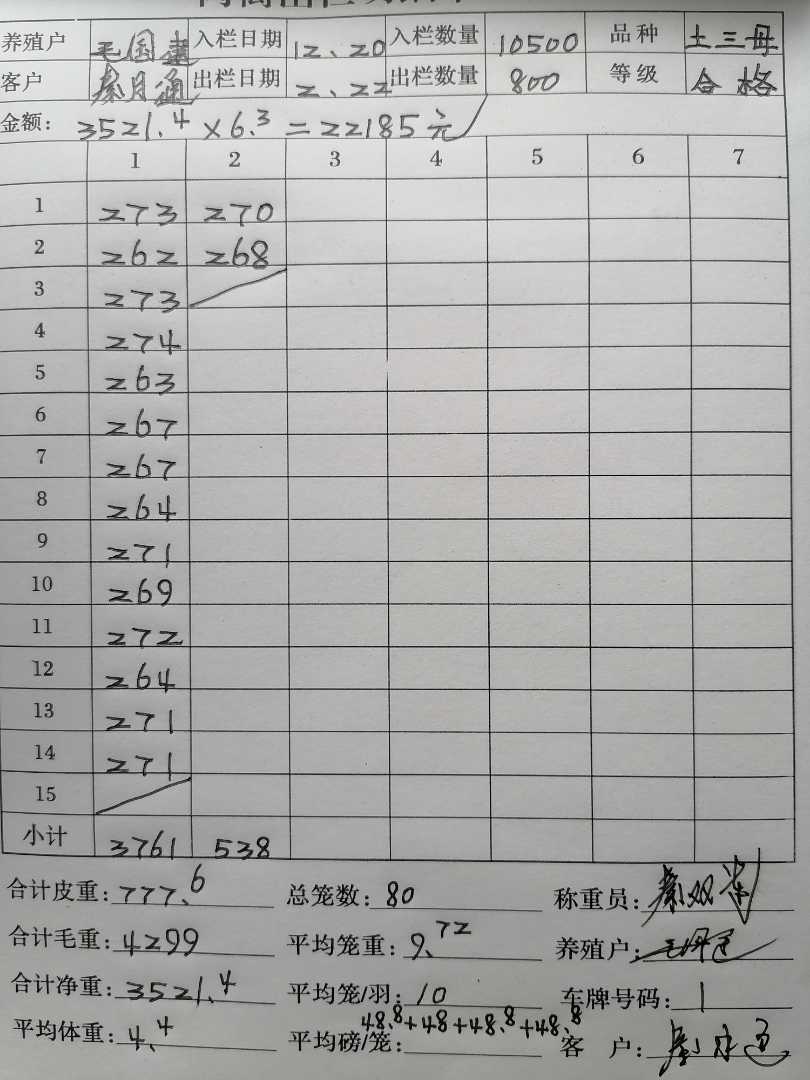 养殖户 毛国建 入栏日期 12、20 入栏数量 10500 品种 土三母
客户 秦月通 出栏日期 2、22 出栏数量 800 等级 合格
金额: 3521.4×6.3=22185元
1 2 3 4 5 6 7
1 273 270
2 262 268
3 273
4 274
5 263
6 267
7 267
8 264
9 271
10 269
11 272
12 264
13 271
14 271
15
小计 3761 538
合计皮重: 777.6 总笼数: 80 称重员:
合计毛重: 4299 平均笼重: 9.72 养殖户:
合计净重: 3521.4 平均笼/羽: 10 车牌号码: 1
48.8+48+48.8+48.8
平均体重: 4.4 平均磅/笼: 客户: